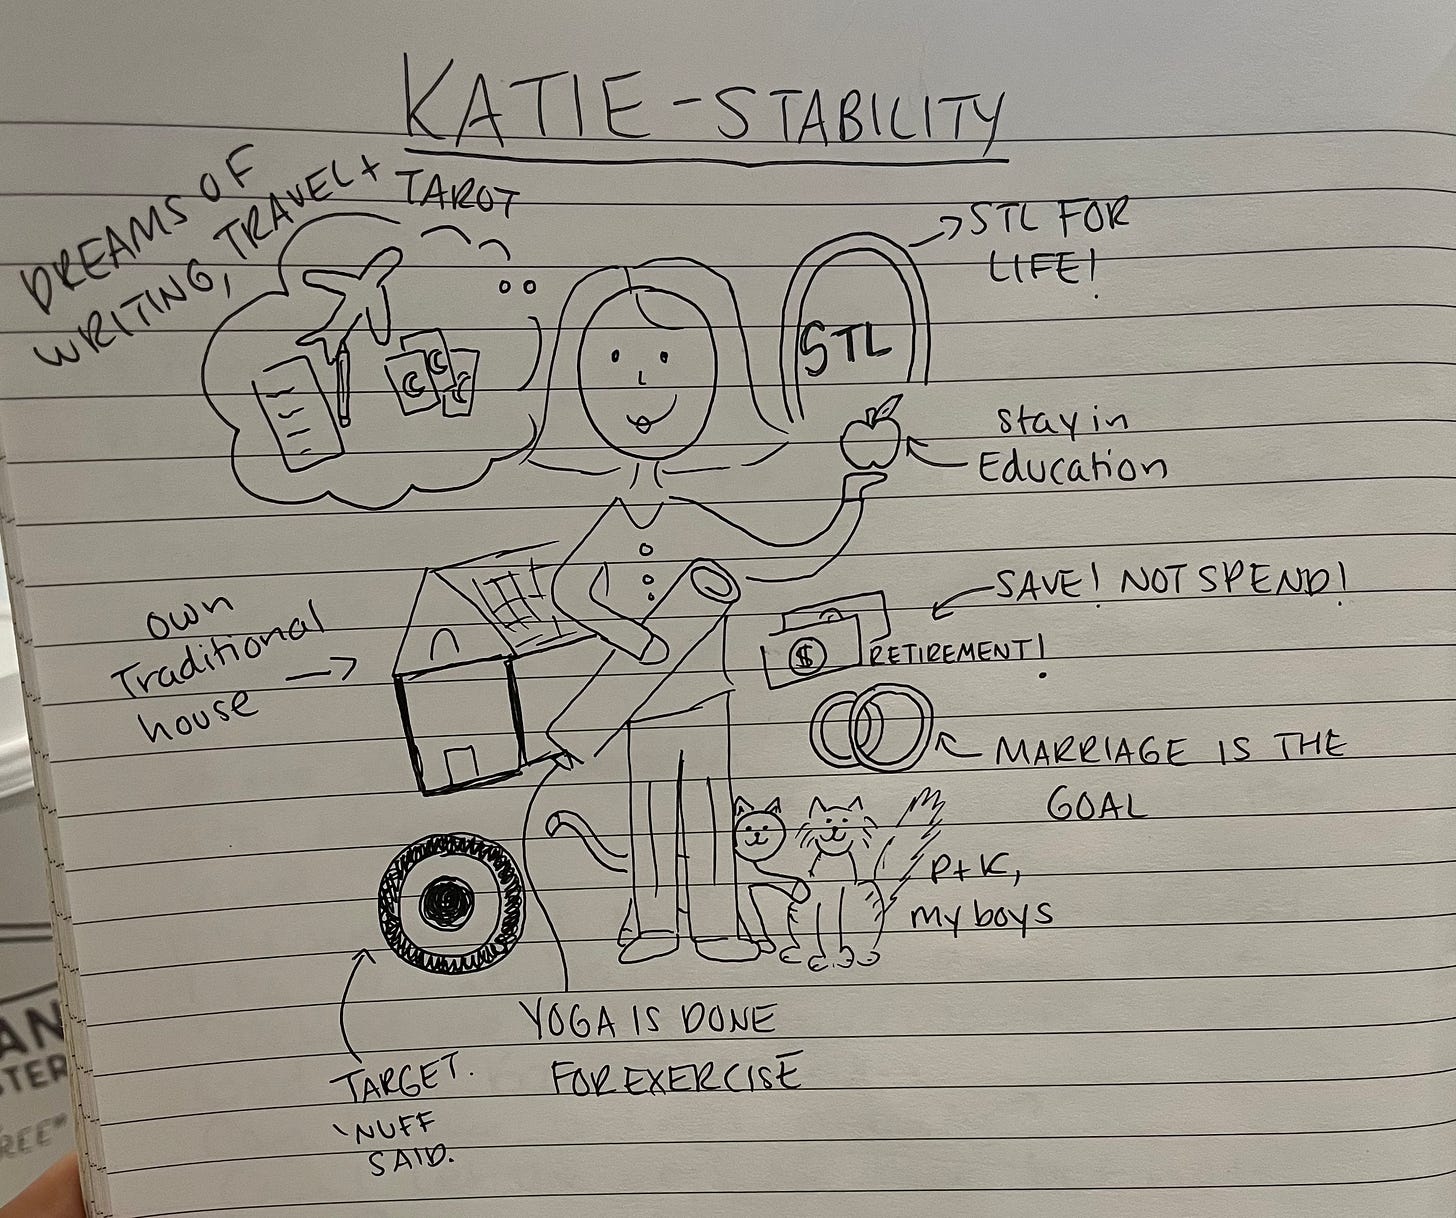 KATIE - STABILITY
DREAMS OF
WRITING, TRAVEL + TAROT
STL FOR
LIFE!
STL
stay in
Education
SAVE! NOT SPEND!
$
RETIREMENT!
own
Traditional
house
MARRIAGE IS THE
GOAL
P + K,
my boys
YOGA IS DONE
FOR EXERCISE
TARGET.
'NUFF
SAID.
AN
STER
REE"